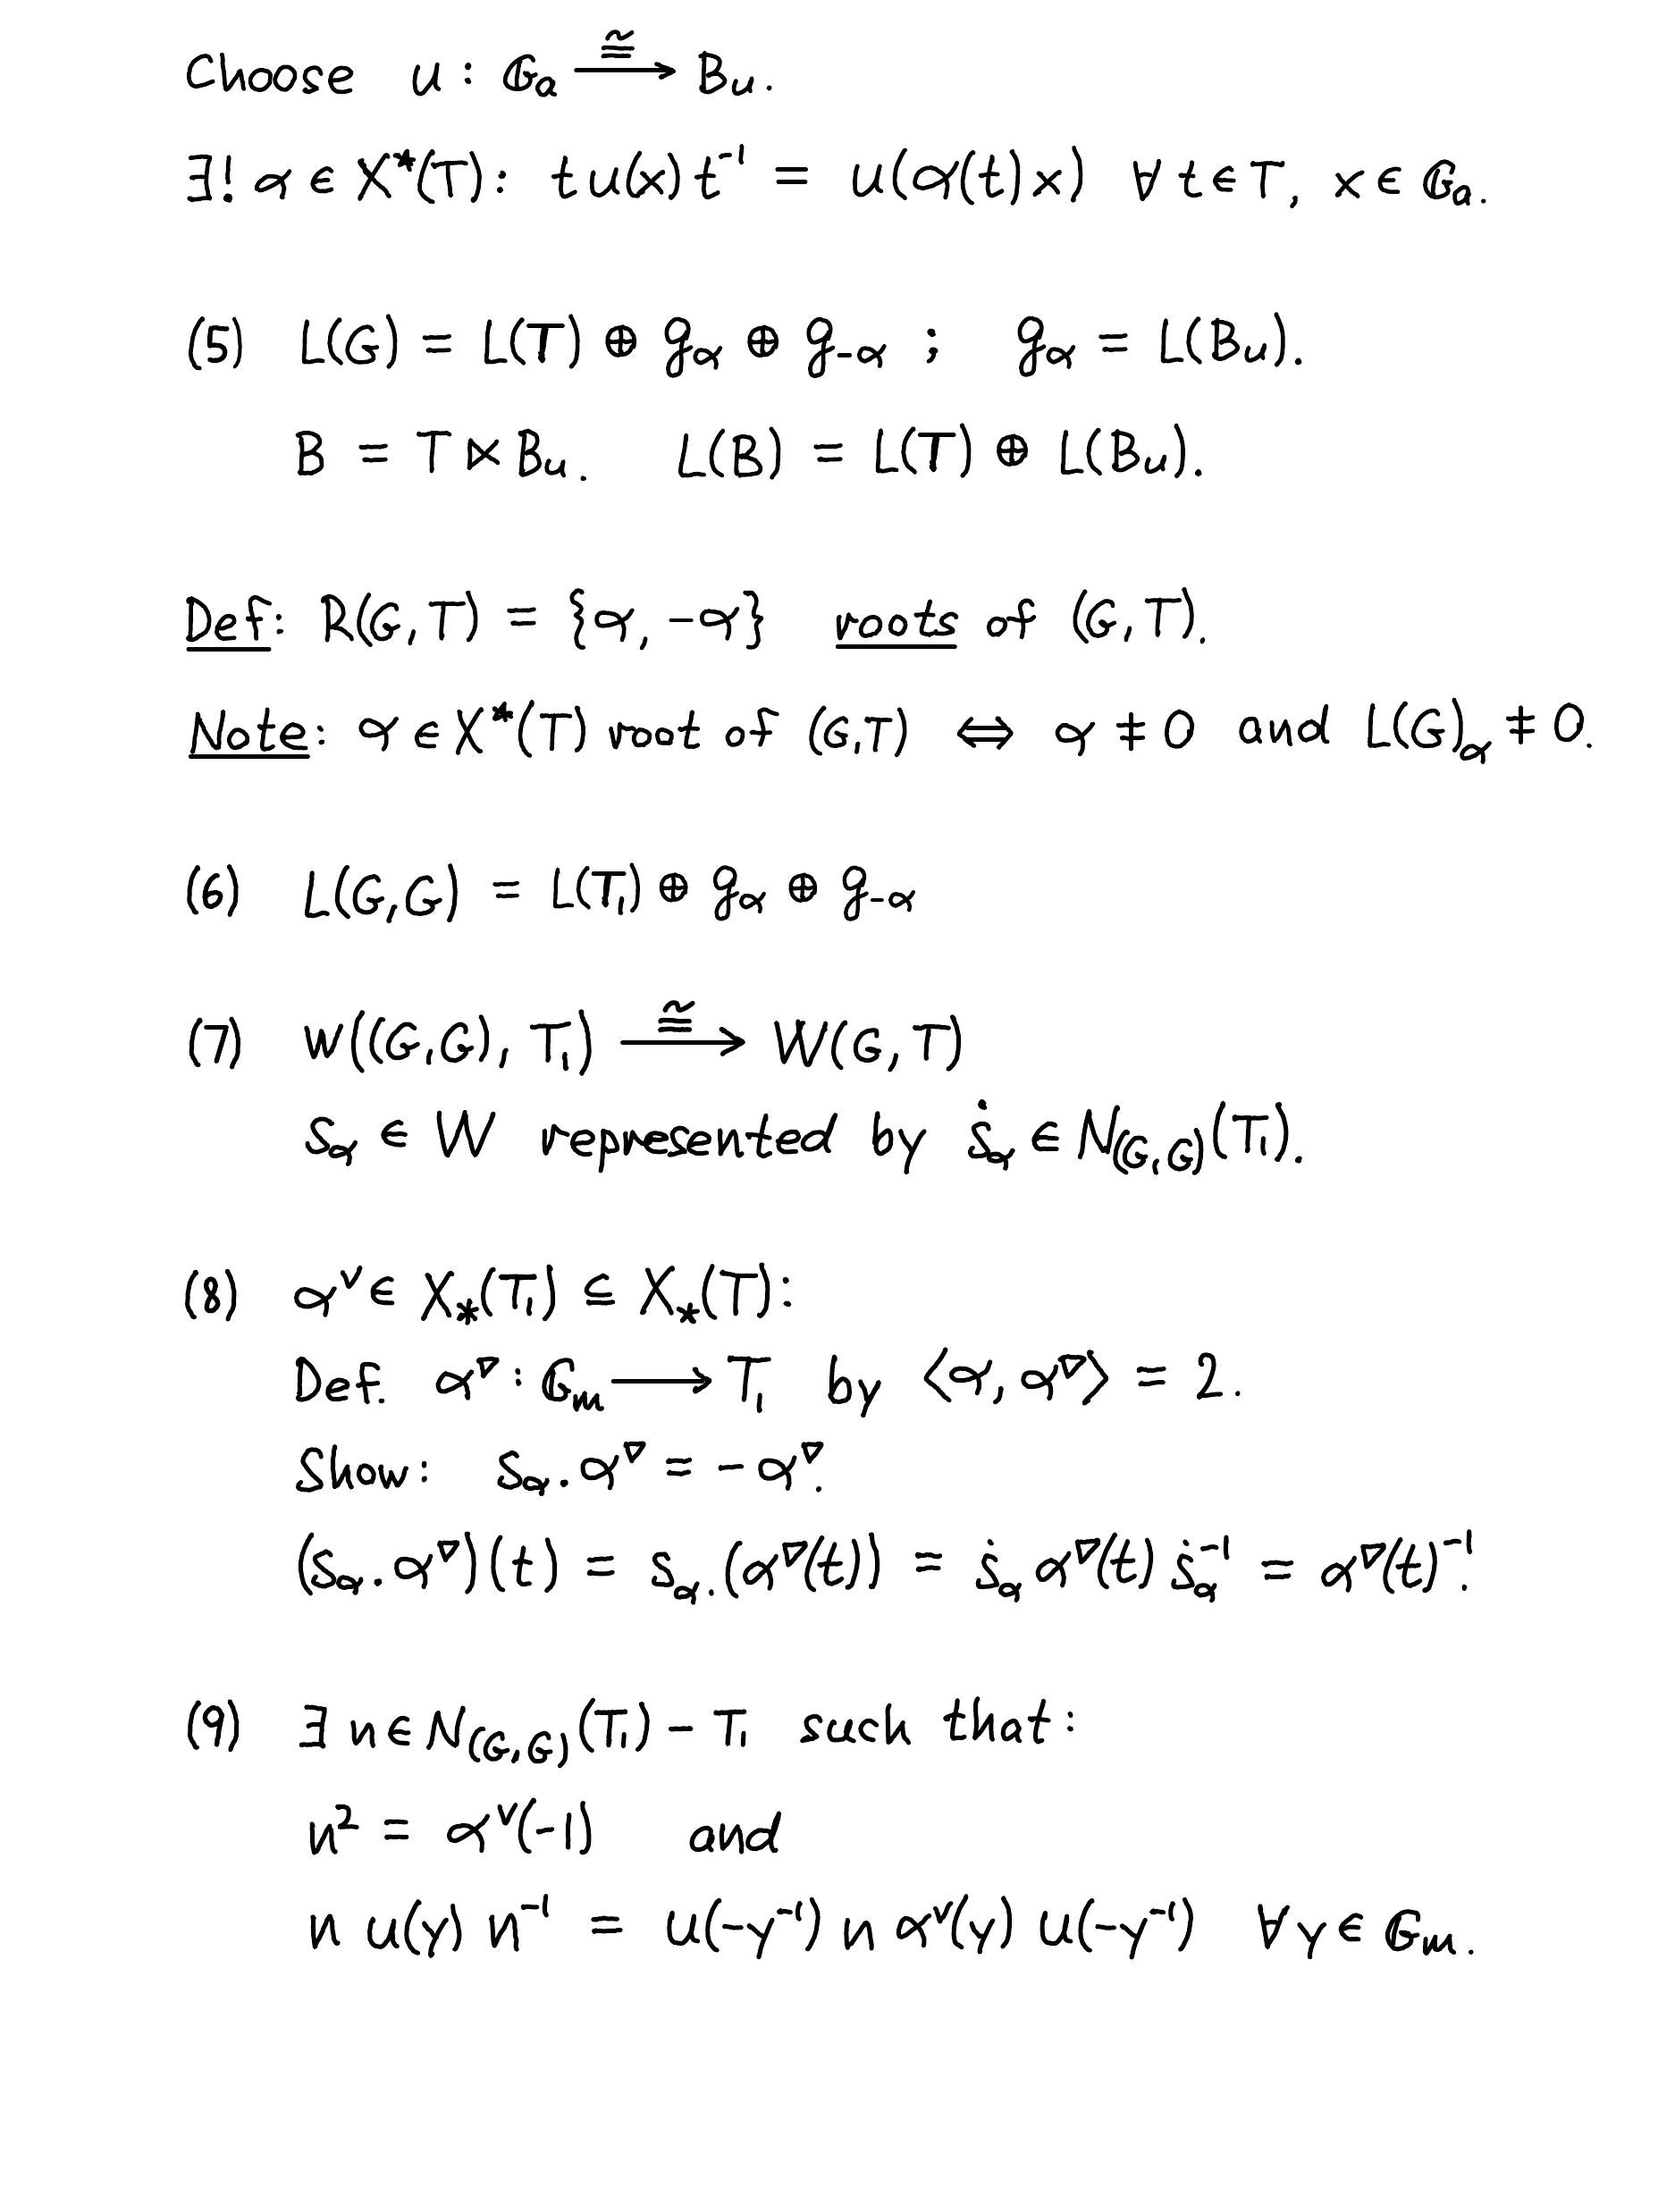 Choose u : 𝔾ₐ ≅→ Bᵤ.
∃! α ∈ X*(T): t u(x) t⁻¹ = u(α(t) x) ∀ t ∈ T, x ∈ 𝔾ₐ.
(5) L(G) = L(T) ⊕ g_α ⊕ g_{-α} ; g_α = L(Bᵤ).
B = T ⋉ Bᵤ. L(B) = L(T) ⊕ L(Bᵤ).
Def: R(G,T) = {α, -α} roots of (G,T).
Note: α ∈ X*(T) root of (G,T) ⇔ α ≠ 0 and L(G)_α ≠ 0.
(6) L(G,G) = L(T₁) ⊕ g_α ⊕ g_{-α}
(7) W((G,G), T₁) ≅→ W(G,T)
s_α ∈ W represented by ṡ_α ∈ N_{(G,G)}(T₁).
(8) α^∨ ∈ X_*(T₁) ⊆ X_*(T):
Def. α^∇ : 𝔾ₘ → T₁ by ⟨α, α^∇⟩ = 2.
Show: s_α . α^∇ = - α^∇.
(s_α . α^∇)(t) = s_α . (α^∇(t)) = ṡ_α α^∇(t) ṡ_α⁻¹ = α^∇(t)⁻¹.
(9) ∃ n ∈ N_{(G,G)}(T₁) - T₁ such that:
n² = α^∨(-1) and
n u(y) n⁻¹ = u(-y⁻¹) n α^∨(y) u(-y⁻¹) ∀ y ∈ 𝔾ₘ.